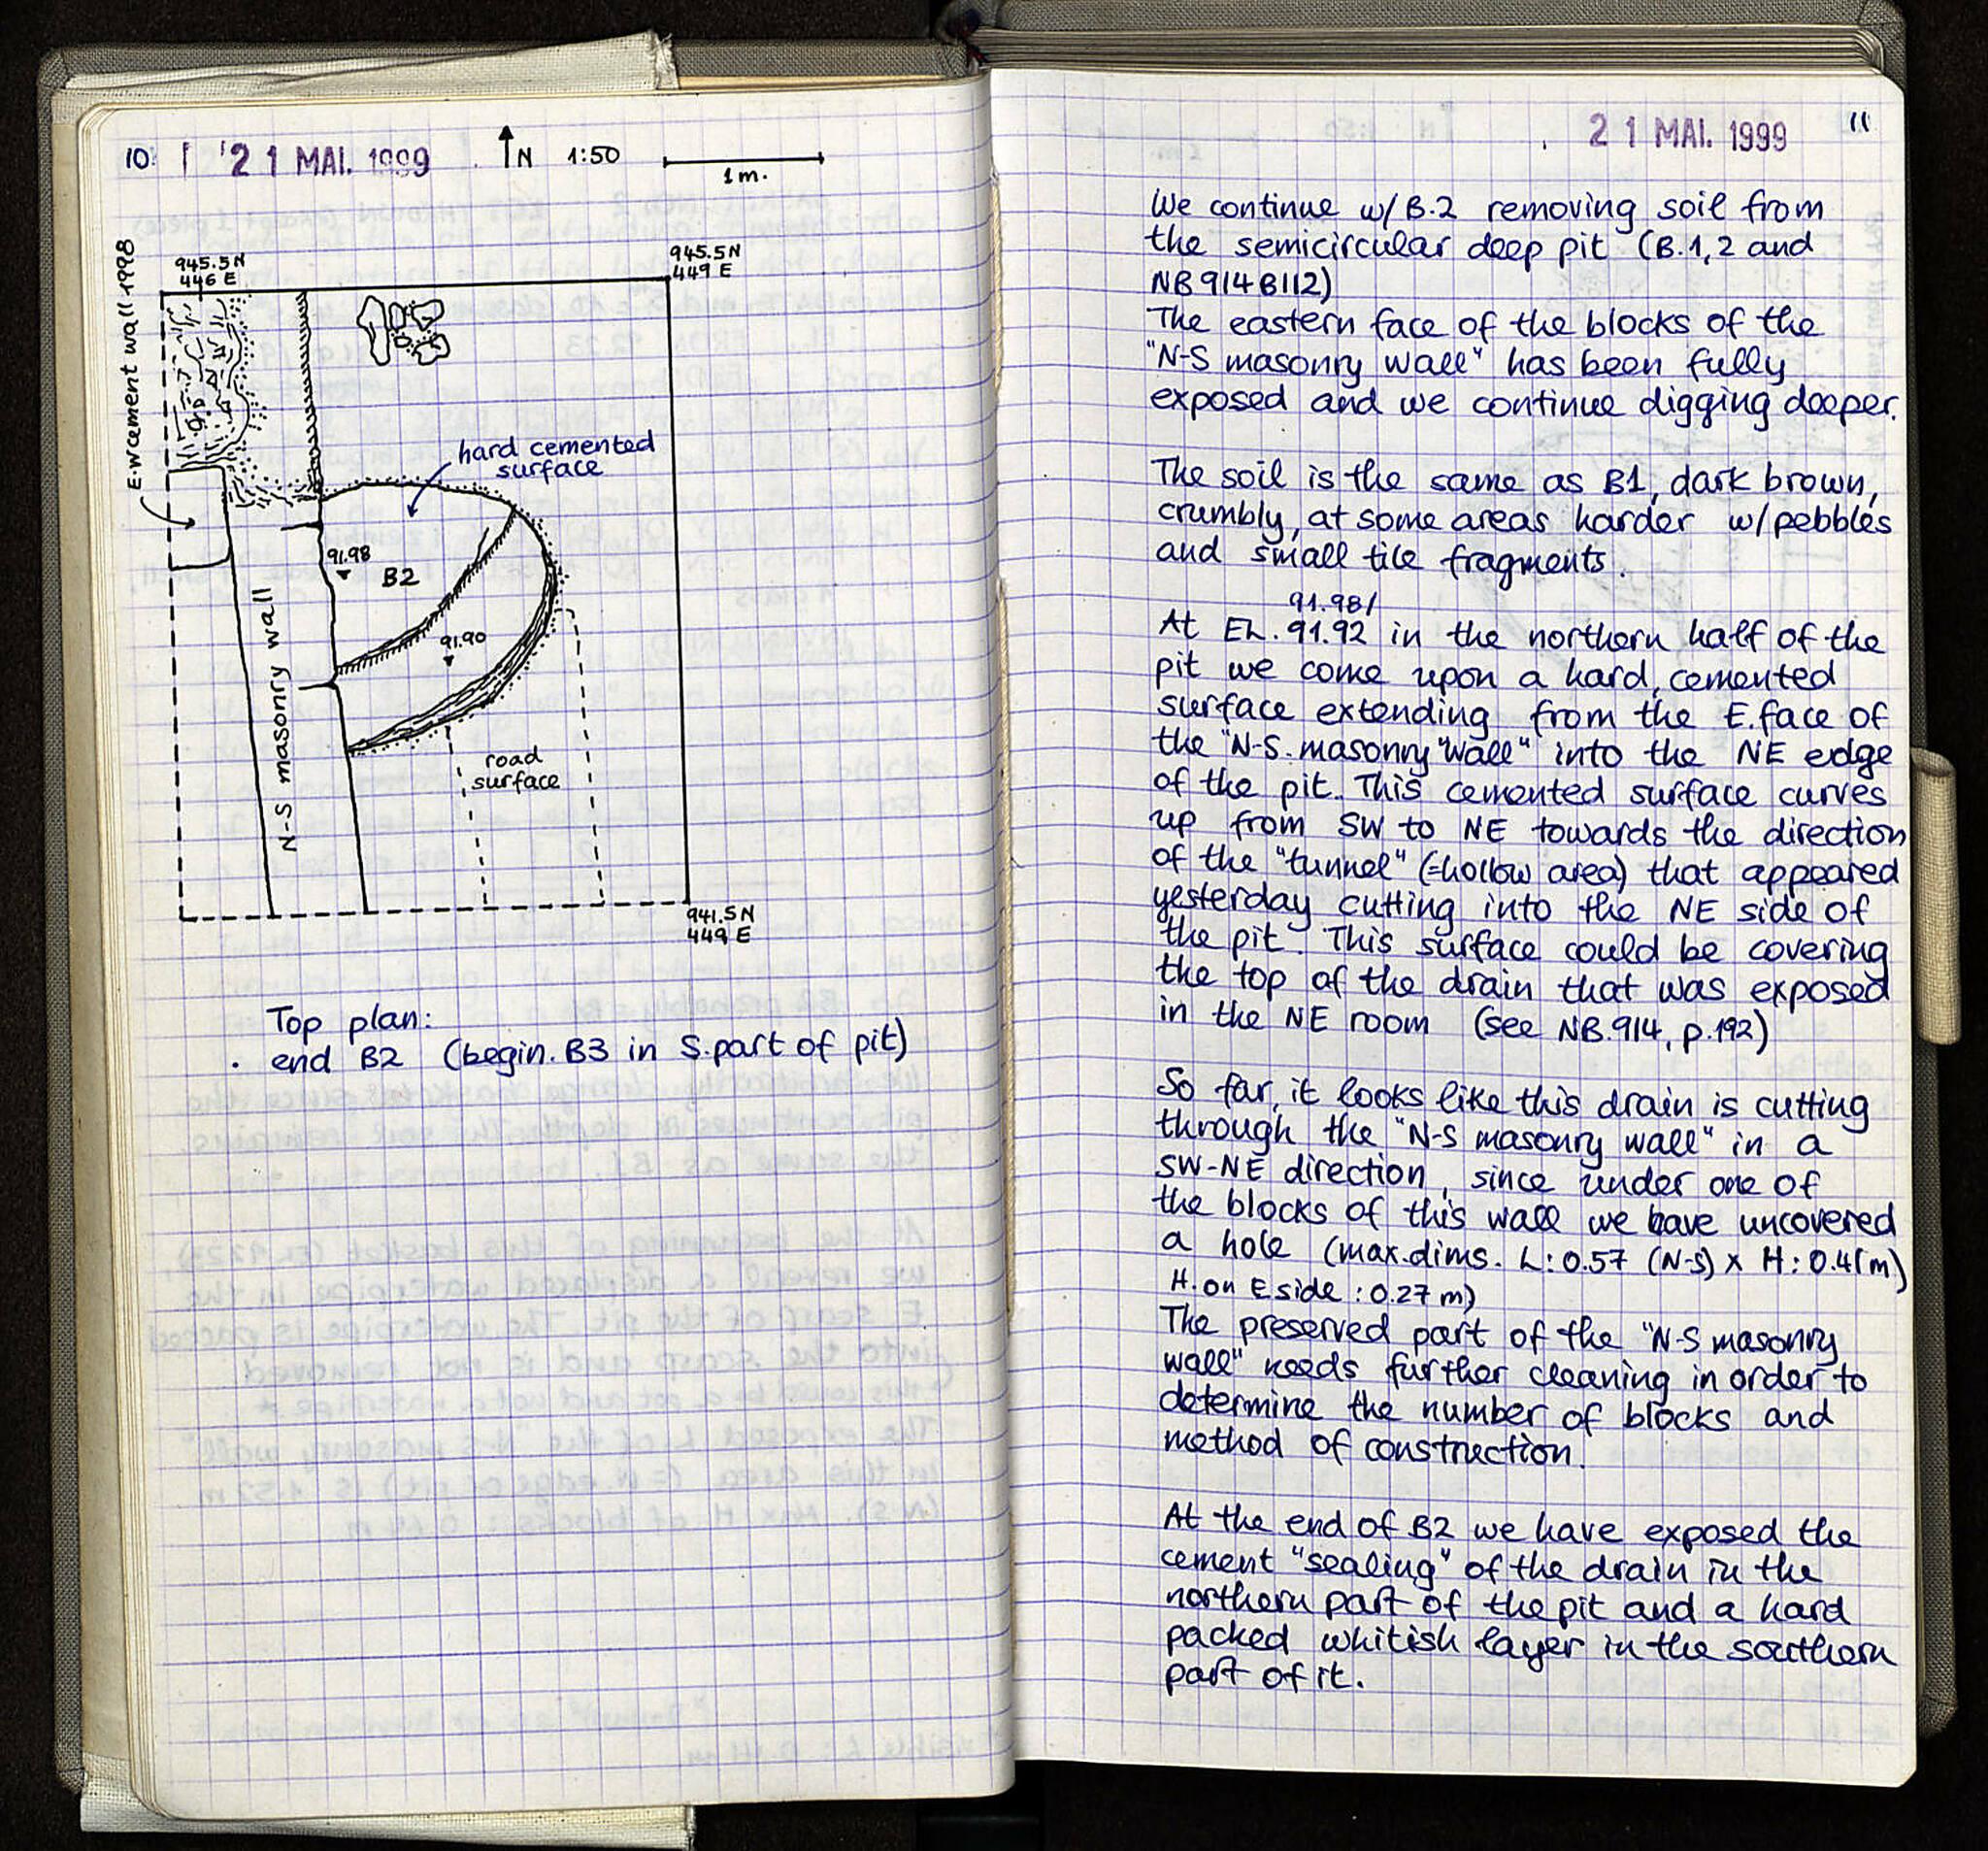 10
21 MAI. 1999
N 1:50
1m.
E-W cement wall 1998
945.5N
446 E
945.5N
449 E
hard cemented
surface
91.98
B2
91.90
N-S masonry wall
road
surface
941.5N
449 E
Top plan:
end B2 (begin. B3 in S. part of pit)
11
21 MAI. 1999
We continue w/ B.2 removing soil from
the semicircular deep pit (B.1,2 and
NB 914 B112)
The eastern face of the blocks of the
"N-S masonry wall" has been fully
exposed and we continue digging deeper.
The soil is the same as B1, dark brown,
crumbly, at some areas harder w/ pebbles
and small tile fragments.
91.98/
At EL. 91.92 in the northern half of the
pit we come upon a hard, cemented
surface extending from the E. face of
the "N-S. masonry "wall" into the NE edge
of the pit. This cemented surface curves
up from SW to NE towards the direction
of the "tunnel" (=hollow area) that appeared
yesterday cutting into the NE side of
the pit. This surface could be covering
the top of the drain that was exposed
in the NE room (see NB. 914, p. 192)
So far, it looks like this drain is cutting
through the "N-S masonry wall" in a
SW-NE direction, since under one of
the blocks of this wall we have uncovered
a hole (max. dims. L: 0.57 (N-S) x H: 0.41m)
H. on E side : 0.27 m)
The preserved part of the "N-S masonry
wall" needs further cleaning in order to
determine the number of blocks and
method of construction.
At the end of B2 we have exposed the
cement "sealing" of the drain in the
northern part of the pit and a hard
packed whitish layer in the southern
part of it.